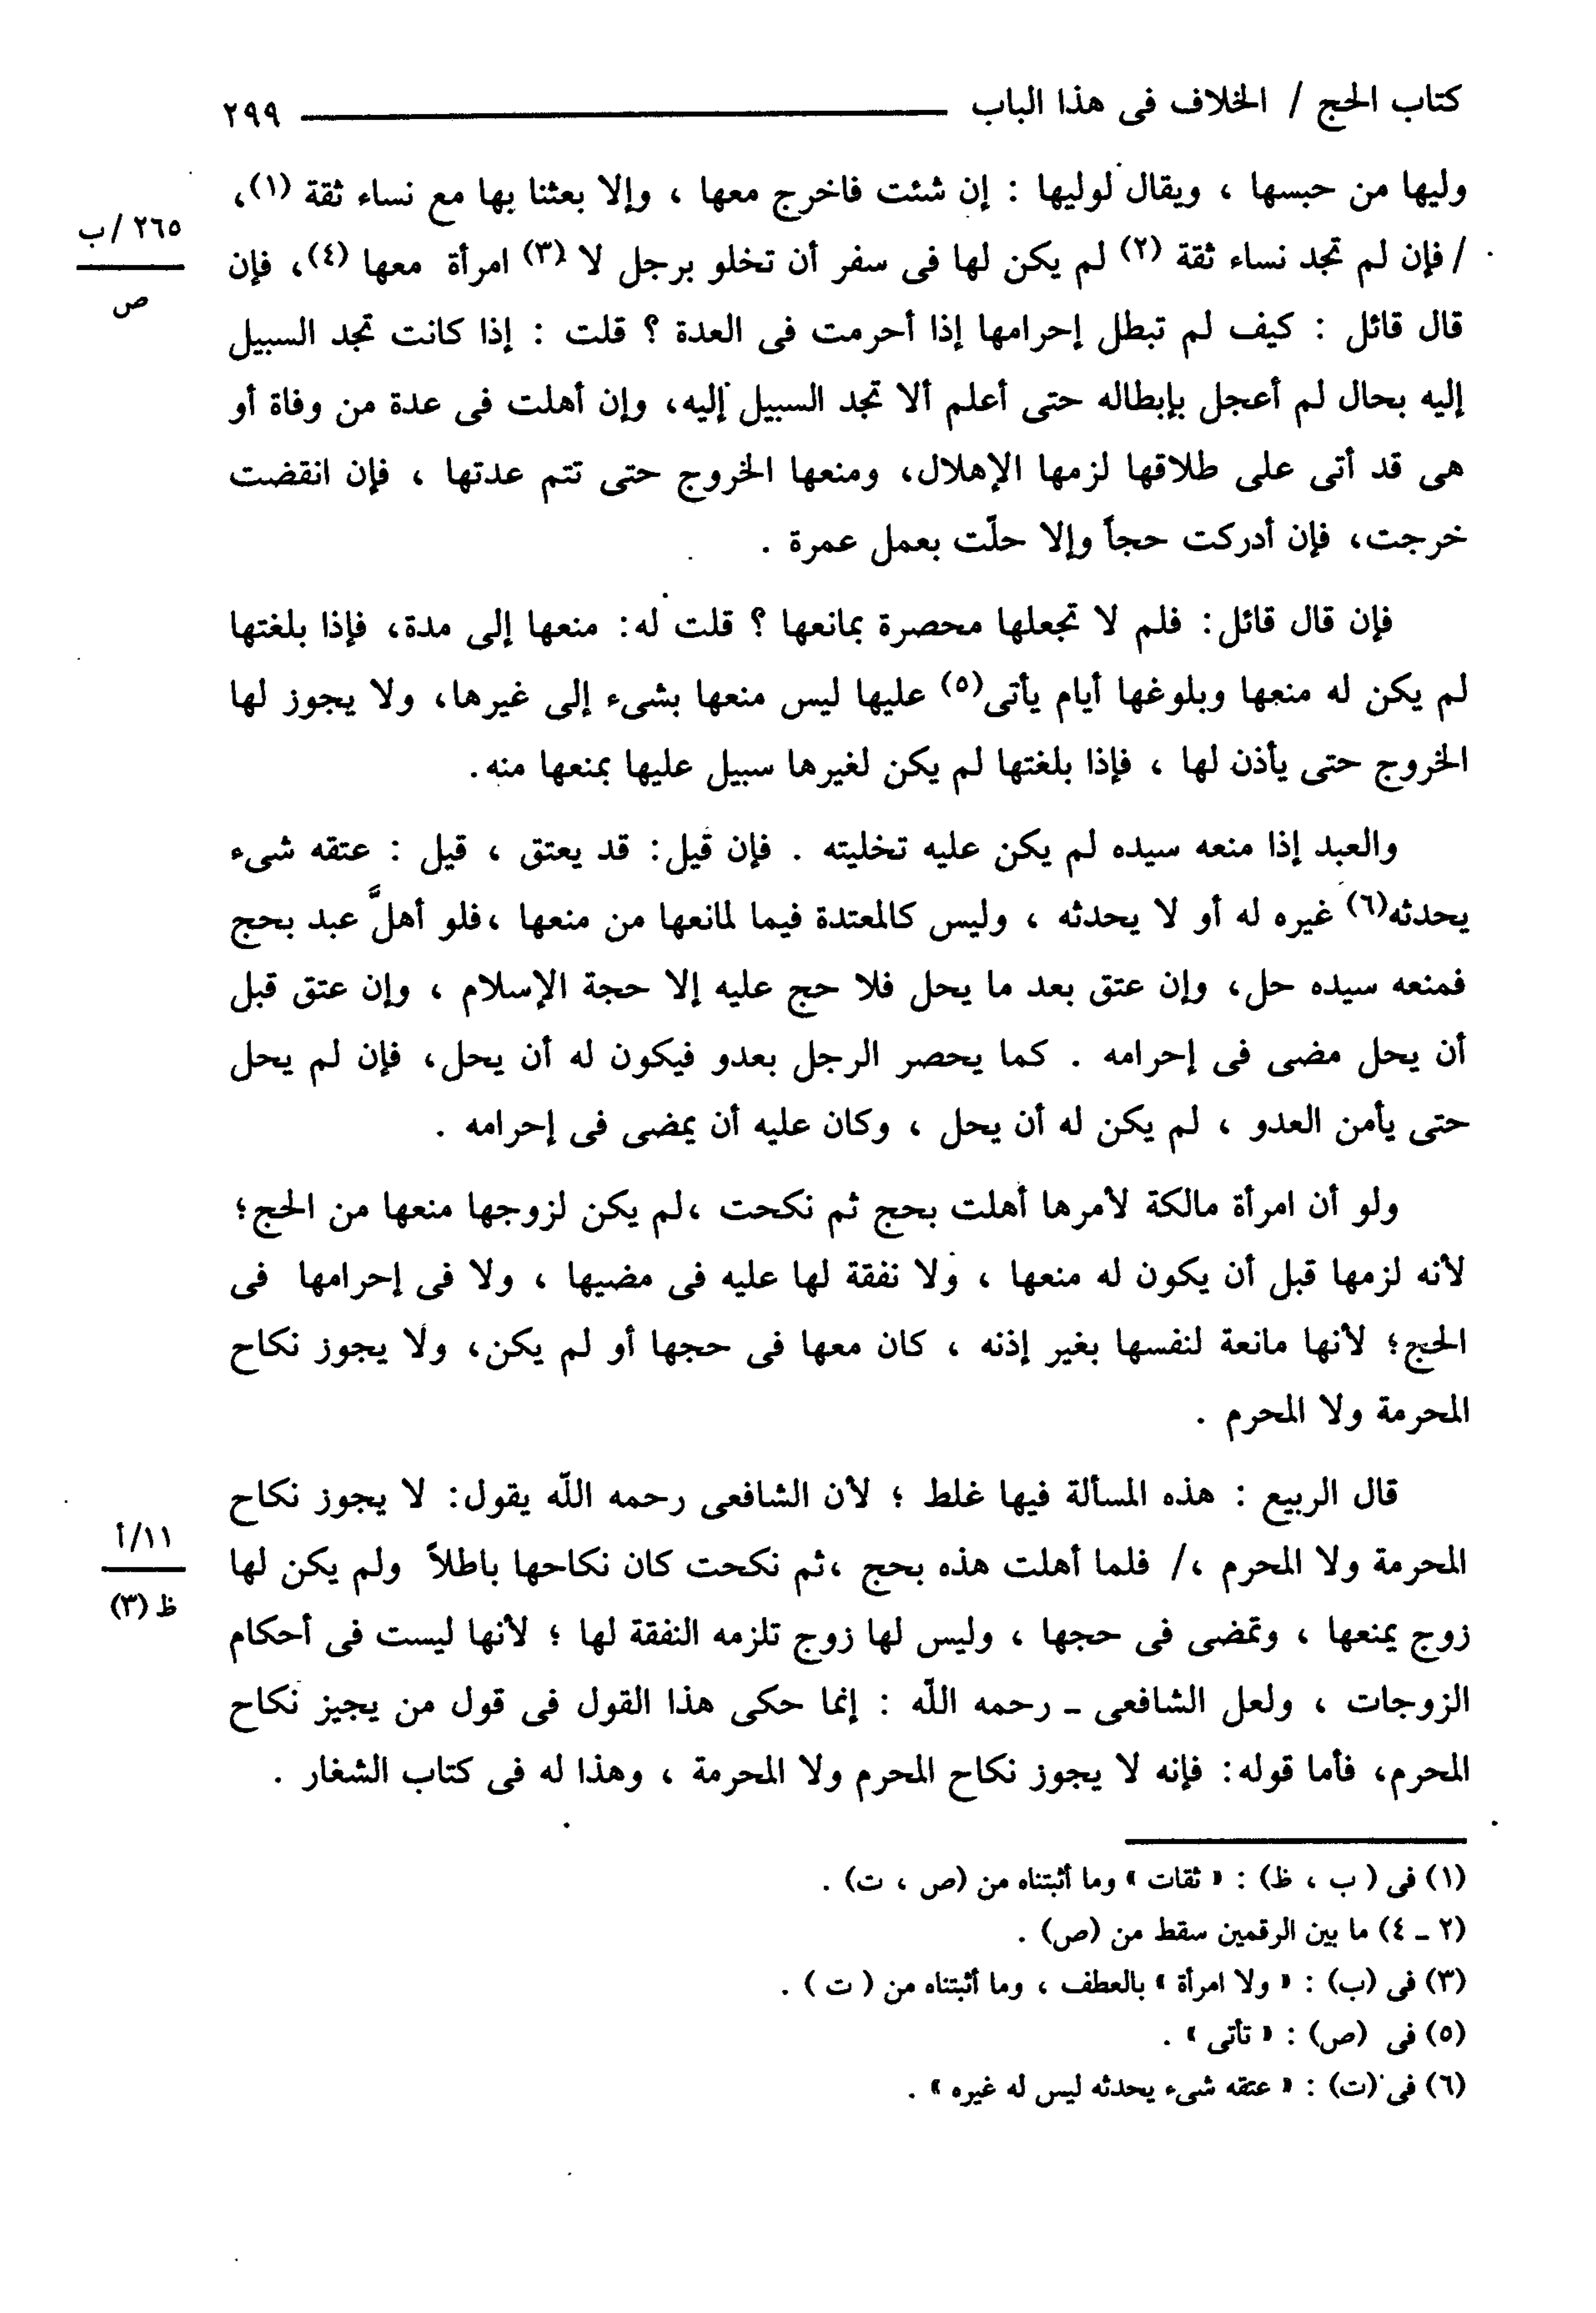 كتاب الحج / الخلاف فى هذا الباب ٢٩٩
وليها من حبسها ، ويقال لوليها : إن شئت فاخرج معها ، وإلا بعثنا بها مع نساء ثقة (١)،
٢٦٥ /ب
/ فإن لم تجد نساء ثقة (٢) لم يكن لها فى سفر أن تخلو برجل لا (٣) امرأة معها (٤)، فإن
ص
قال قائل : كيف لم تبطل إحرامها إذا أحرمت فى العدة ؟ قلت : إذا كانت تجد السبيل
إليه بحال لم أعجل بإبطاله حتى أعلم ألا تجد السبيل إليه، وإن أهلت فى عدة من وفاة أو
هى قد أتى على طلاقها لزمها الإهلال، ومنعها الخروج حتى تتم عدتها ، فإن انقضت
خرجت، فإن أدركت حجاً وإلا حلّت بعمل عمرة .
فإن قال قائل: فلم لا تجعلها محصرة بمانعها ؟ قلت له: منعها إلى مدة، فإذا بلغتها
لم يكن له منعها وبلوغها أيام يأتى(٥) عليها ليس منعها بشىء إلى غيرها، ولا يجوز لها
الخروج حتى يأذن لها ، فإذا بلغتها لم يكن لغيرها سبيل عليها بمنعها منه.
والعبد إذا منعه سيده لم يكن عليه تخليته . فإن قيل: قد يعتق ، قيل : عتقه شىء
يحدثه(٦) غيره له أو لا يحدثه ، وليس كالمعتدة فيما لمانعها من منعها ،فلو أهلَّ عبد بحج
فمنعه سيده حل، وإن عتق بعد ما يحل فلا حج عليه إلا حجة الإسلام ، وإن عتق قبل
أن يحل مضى فى إحرامه . كما يحصر الرجل بعدو فيكون له أن يحل، فإن لم يحل
حتى يأمن العدو ، لم يكن له أن يحل ، وكان عليه أن يمضى فى إحرامه .
ولو أن امرأة مالكة لأمرها أهلت بحج ثم نكحت ،لم يكن لزوجها منعها من الحج؛
لأنه لزمها قبل أن يكون له منعها ، ولا نفقة لها عليه فى مضيها ، ولا فى إحرامها فى
الحج؛ لأنها مانعة لنفسها بغير إذنه ، كان معها فى حجها أو لم يكن، ولا يجوز نكاح
المحرمة ولا المحرم .
قال الربيع : هذه المسألة فيها غلط ؛ لأن الشافعى رحمه اللّه يقول: لا يجوز نكاح
١١/أ
المحرمة ولا المحرم ،/ فلما أهلت هذه بحج ،ثم نكحت كان نكاحها باطلاً ولم يكن لها
ظ (٣)
زوج يمنعها ، وتمضى فى حجها ، وليس لها زوج تلزمه النفقة لها ؛ لأنها ليست فى أحكام
الزوجات ، ولعل الشافعى ـ رحمه اللّه : إنما حكى هذا القول فى قول من يجيز نكاح
المحرم، فأما قوله: فإنه لا يجوز نكاح المحرم ولا المحرمة ، وهذا له فى كتاب الشغار .
(١) فى ( ب ، ظ) : « ثقات » وما أثبتناه من (ص ، ت) .
(٢ ـ ٤) ما بين الرقمين سقط من (ص) .
(٣) فى (ب) : « ولا امرأة » بالعطف ، وما أثبتناه من ( ت ) .
(٥) فى (ص) : « تأتى » .
(٦) فى (ت) : « عتقه شىء يحدثه ليس له غيره » .